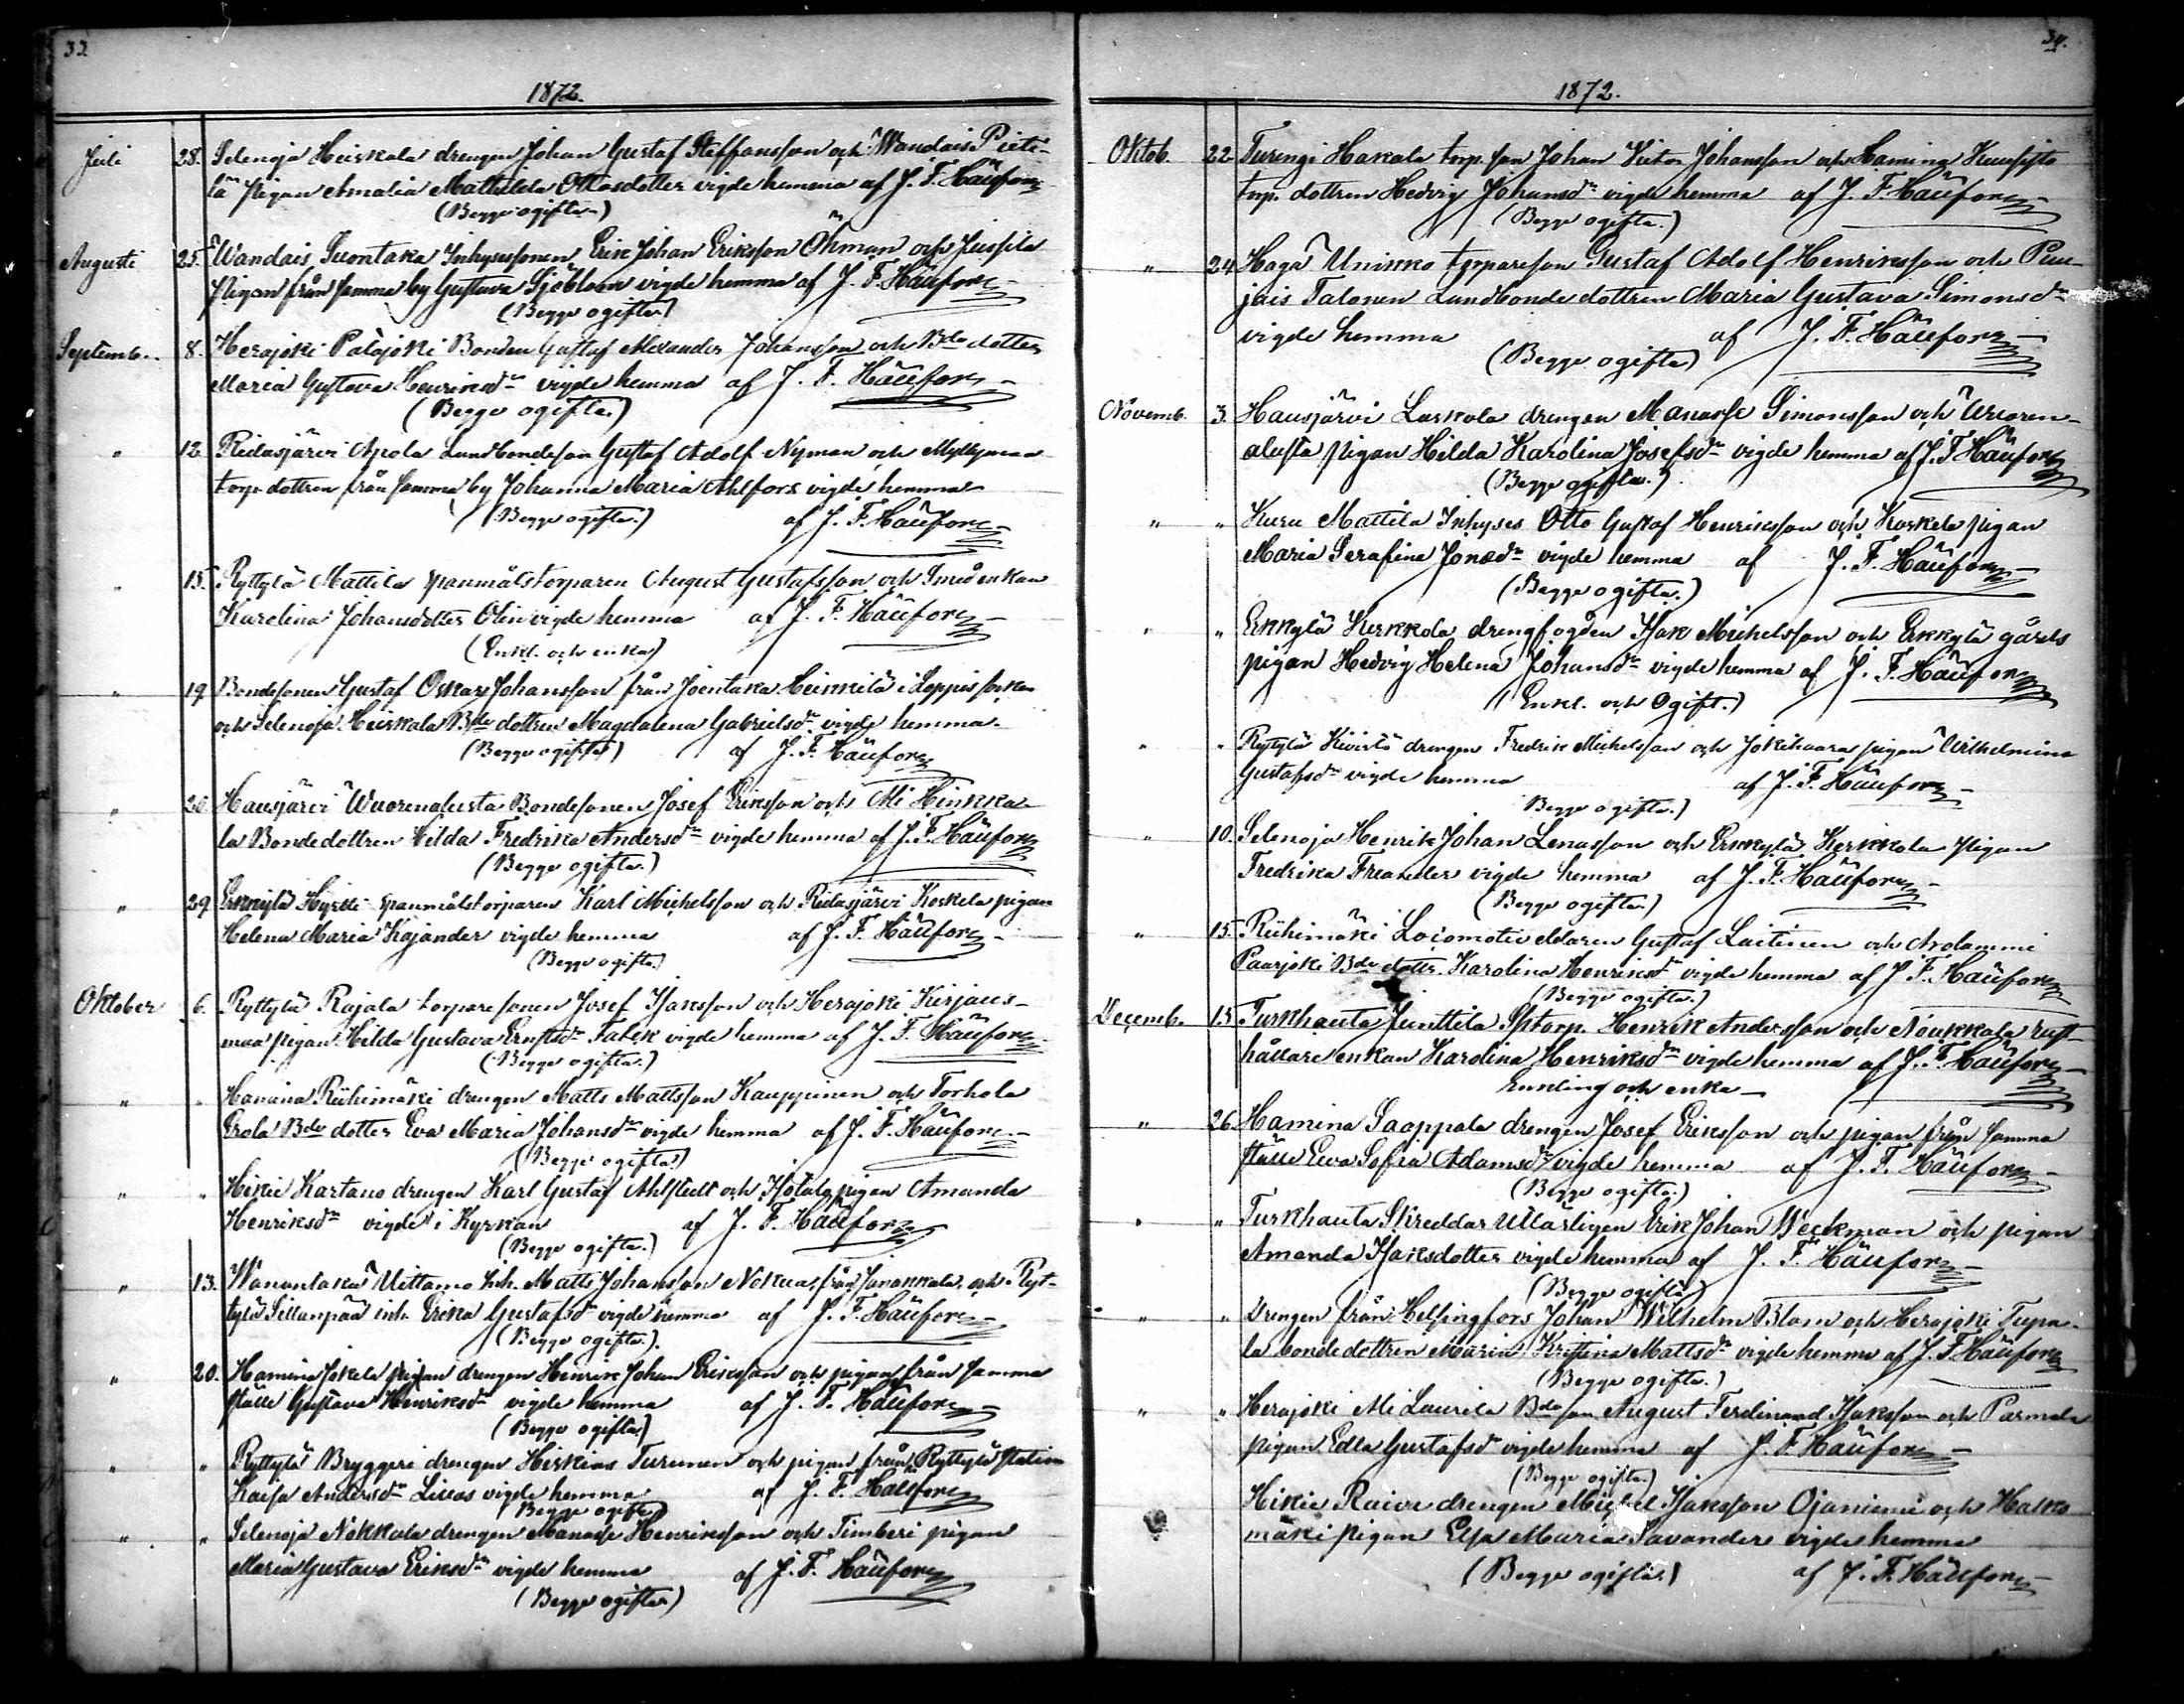 33
1872.
Juli 28. Selenoja Heiskala drengen Johan Gustaf Steffansson och Wandais Pieti-
lä pigan Amalia Mathilda Ottosdotter vigde hemma af J. F. Häufors
(Begge ogifta)
Augusti 25. Wandais Inhysessonen Erik Johan Eriksson Öhman och Jussila
pigan från samma by Gustava Sjöblom vigde hemma af J. F. Häufors
(Begge ogifta)
Septemb. 8. Herajoki Palojoki Bonden Gustaf Alexander Johansson och Bde dotter
Maria Gustava Henriksdr vigde hemma af J. F. Häufors
(Begge ogifta.)
" 12 Ridasjärvi Apola Landbondeson Gustaf Adolf Nyman och
torp. dottren från samma by Johanna Maria Ahlfors vigde hemma
(Begge ogifta.) af J. F. Häufors
" 15. Ryttylä Mattila spanmålstorparen August Gustafsson och Smed enkan
Karolina Johansdotter Olin vigde hemma af J. F. Häufors
(Enkl. och enka)
" 19. Bondesonen Gustaf Oskar Johansson från Joentaka Heinkilä i Loppis socken
och Selenoja Heiskala Bde dottren Magdalena Gabrielsdr vigde hemma
(Begge ogifta) af J. F. Häufors
" 26. Hausjärvi Wuorenalusta Bondesonen Josef Eriksson och Ali Hinkka-
la Bondedottren Hilda Fredrika Andersdr vigde hemma af J. F. Häufors
(Begge ogifta.)
" 29. Erkkylä Hyrkki spanmålstorparen Karl Michelsson och Ridasjärvi Koskela pigan
Helena Maria Kajander vigde hemma af J. F. Häufors
(Begge ogifta.)
Oktober 6. Ryttylä Rajala torparesonen Josef Isaksson och Herajoki Kirjans-
maa pigan Hilda Gustava Ernstdr Falck vigde hemma af J. F. Häufors
(Begge ogifta.)
" " Hamina Riihimäki drengen Matts Mattsson Kauppinen och Torhola
Erola Bde dotter Eva Maria Johansdr vigde hemma af J. F. Häufors
(Begge ogifta.)
" " Hikiä Kartano drengen Karl Gustaf Ahlstedt och Isotalo pigan Amanda
Henriksdr vigde i Kyrkan af J. F. Häufors
(Begge ogifta.)
" 13. Wanantaka Uittamo Inh. Matts Johansson Nokua från Janakkala och Ryt-
tylä Sillanpää inh. Erika Gustafsdr vigde hemma af J. F. Häufors
(Begge ogifta.)
" 20. Hamina Jokela drengen Henrik Johan Eriksson och pigan från samma
ställe Gustava Henriksdr vigde hemma af J. F. Häufors
(Begge ogifta)
" " Ryttylä Bryggeri drengen Hiskias Turunen och pigan från Ryttylä station
Kaisa Andersdr Liukas vigde hemma af J. F. Häufors
(Begge ogifta)
" " Selenoja Nokkala drengen Manasse Henriksson och Timberi pigan
Maria Gustava Eriksdr vigde hemma af J. F. Häufors
(Begge ogifta)
34.
1872.
Oktob. 22 Turengi Hakala torp. son Johan Victor Johansson och Hamina Kuusisto
torp. dottren Hedvig Johansdr vigde hemma af J. F. Häufors
(Begge ogifta.)
" 24 Haga Unikko torpareson Gustaf Adolf Henriksson och Puu-
jais Talonen Landbonde dottren Maria Gustava Simonsdr
vigde hemma af J. F. Häufors
(Begge ogifta)
Novemb. 3. Hausjärvi Laskola drengen Manasse Simonsson och Wuoren-
alusta pigan Hilda Karolina Josefsdr vigde hemma af J. F. Häufors
(Begge ogifta.)
" " Kuru Mattila Inhyses Otto Gustaf Henriksson och Koskela pigan
Maria Serafina Jonaedr vigde hemma af J. F. Häufors
(Begge ogifta.)
" " Erkkylä Kerkkola drengfogden Isak Michelsson och Erkkylä gårds
pigan Hedvig Helena Johansdr vigde hemma af J. F. Häufors
(Enkl. och Ogift.)
" " Ryttylä Kivistö drengen Fredrik Michelsson och Jokihaara pigan Wilhelmina
Gustafsdr vigde hemma af J. F. Häufors
Begge ogifta.)
" 10. Selenoja Henrik Johan Lenasson och Erkkylä Kerkkola pigan
Fredrika Freander vigde hemma af J. F. Häufors
(Begge ogifta.)
" 15. Riihimäki Locomotiv eldaren Gustaf Laitinen och Arolammi
Paarjoki Bde dottr. Karolina Henriksdr vigde hemma af J. F. Häufors
(Begge ogifta.)
Decemb. 15. Turkhauta Junttila Sptorp. Henrik Andersson och Noukkala rust-
hållare enkan Karolina Henriksdr vigde hemma af J. F. Häufors
Enkling och enka
" 26 Hamina Saappala drengen Josef Eriksson och pigan från samma
ställe Eva Sofia Adamsdr vigde hemma af J. F. Häufors
(Begge ogifta.)
" " Turkhauta Skreddar Utlärlingen Erik Johan Weckman och pigan
Amanda Isaksdotter vigde hemma af J. F. Häufors
(Begge ogifta)
" " Drengen från Helsingfors Johan Wilhelm Blom och Herajoki Tupa-
la bondedottren Maria Kristina Mattsdr vigde hemma af J. F. Häufors
(Begge ogifta.)
" " Herajoki Ali Laurila Bde son August Ferdinand Isaksson och Parmala
pigan Edla Gustafsdr vigde hemma af J. F. Häufors
(Begge ogifta.)
Hikiä Raivi drengen Michel Isaksson Ojaniemi och Halko
mäki pigan Elsa Maria Savander vigde hemma
(Begge ogifta) af J. F. Häufors